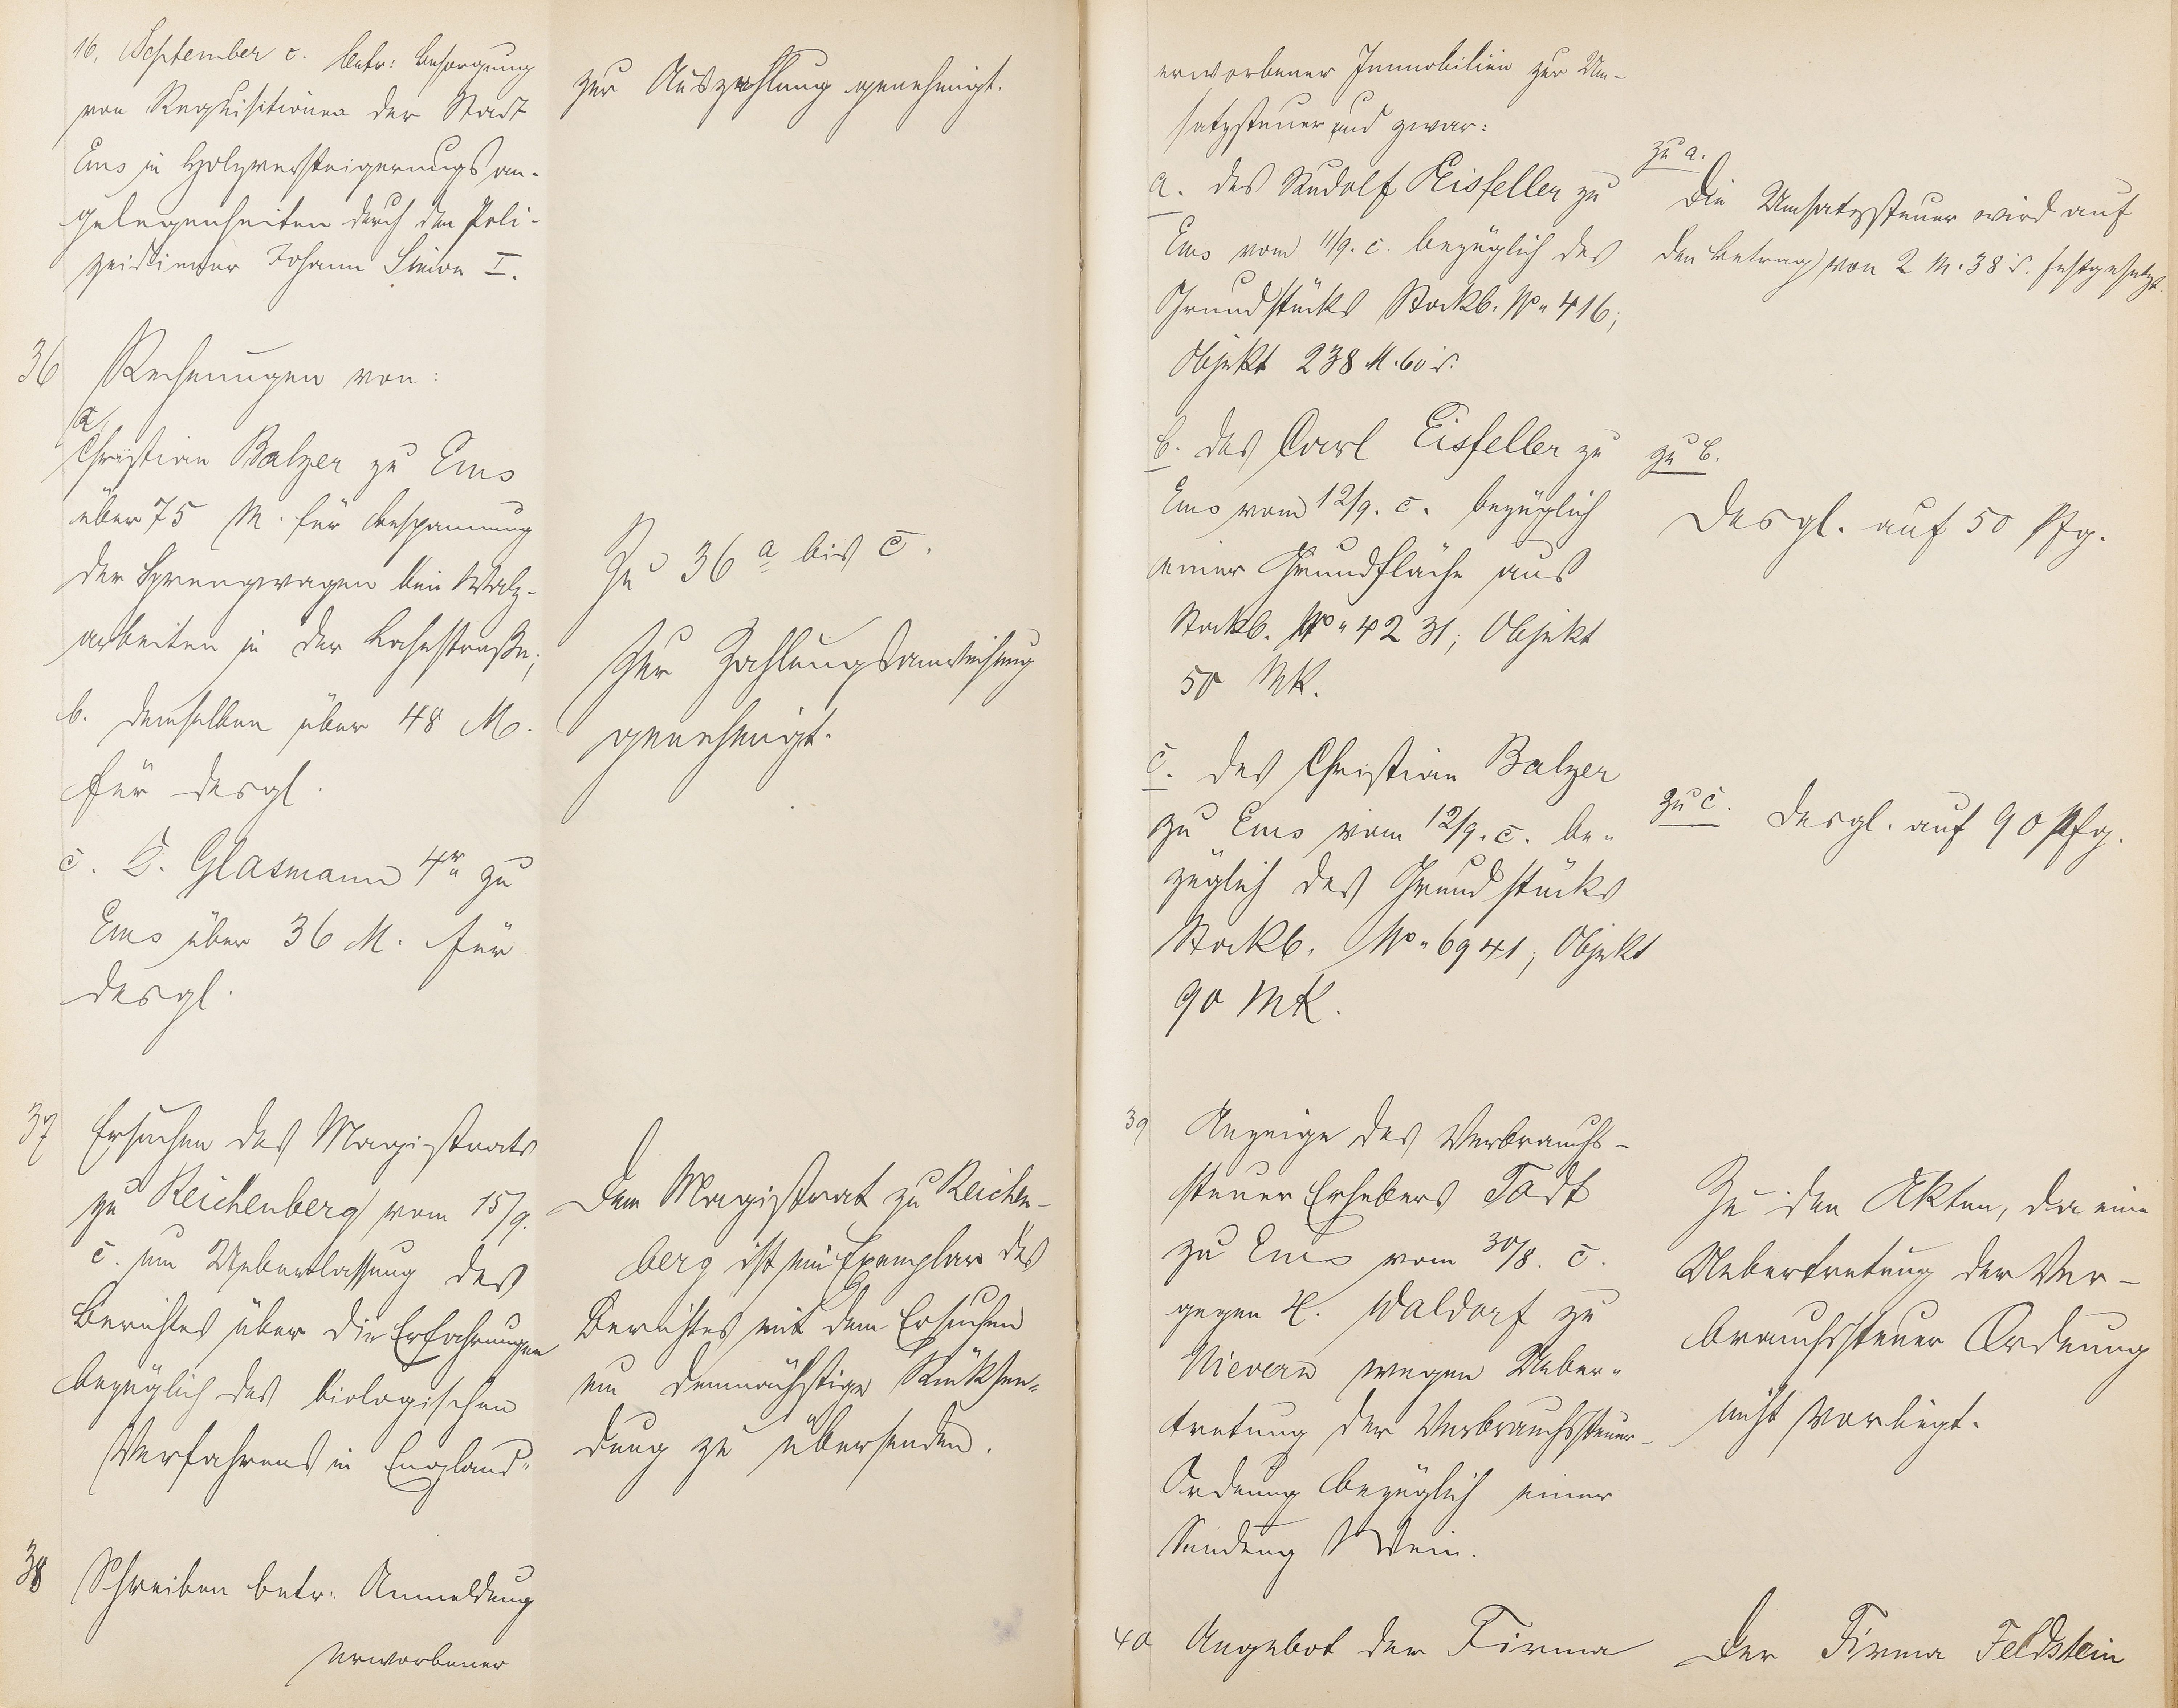 16. September c. betr: Besorgung
von Requisitionen der Stadt
Ems in Holzversteigerungsan-
gelegenheiten durch den Poli-
zeidiener Johann Simon I.
zur Auszahlung genehmigt.
36 Rechnungen von:
a,
Christian Balzer zu Ems
über 75 M. für Bespannung
der Sprengwagen bei Walz-
arbeiten in der Lahnstraße;
b. demselben über 48 M.
für desgl.
c. K. Glasmann 4r zu
Ems über 36 M. für
desgl.
Zu 36 a bis c.
Zur Zahlungsanweisung
genehmigt.
37 Ersuchen des Magistrats
zu Reichenberg vom 15/9.
c. um Ueberlassung des
Berichtes über die Erfahrungen
bezüglich des biologischen
Verfahrens in England.
Dem Magistrat zu Reichen-
berg ist ein Exemplar des
Berichtes mit dem Ersuchen
um demnächstige Rücksen-
dung zu übersenden.
38 Schreiben betr. Anmeldung
erworbener
erworbener Immobilien zur Um-
satzsteuer und zwar:
a. des Rudolf Eisfeller zu
Ems vom 11/9. c. bezüglich des
Grundstücks Stockb. No 416;
Objekt 238 M. 60 d.
zu a.
Die Umsatzsteuer wird auf
den Betrag von 2 M. 38 d. festgesetzt.
b. des Carl Eisfeller zu
Ems vom 12/9. c. bezüglich
einer Grundfläche aus
Stockb. No 4231; Objekt
50 Mk.
zu b.
Desgl. auf 50 Pfg.
c. des Christian Balzer
zu Ems vom 12/9. c. be-
züglich des Grundstücks
Stockb. No 6941; Objekt
90 Mk.
zu c. Desgl. auf 90 Pfg.
39 Anzeige des Verbrauchs-
steuer Erhebers Todt
zu Ems vom 30/8. c.
gegen H. Waldorf zu
Nievern wegen Ueber-
tretung der Verbrauchssteuer-
Ordnung bezüglich einer
Sendung Wein.
Zu den Akten, da eine
Uebertretung der Ver-
brauchssteuer Ordnung
nicht vorliegt.
40 Angebot der Firma
Der Firma Feldstein